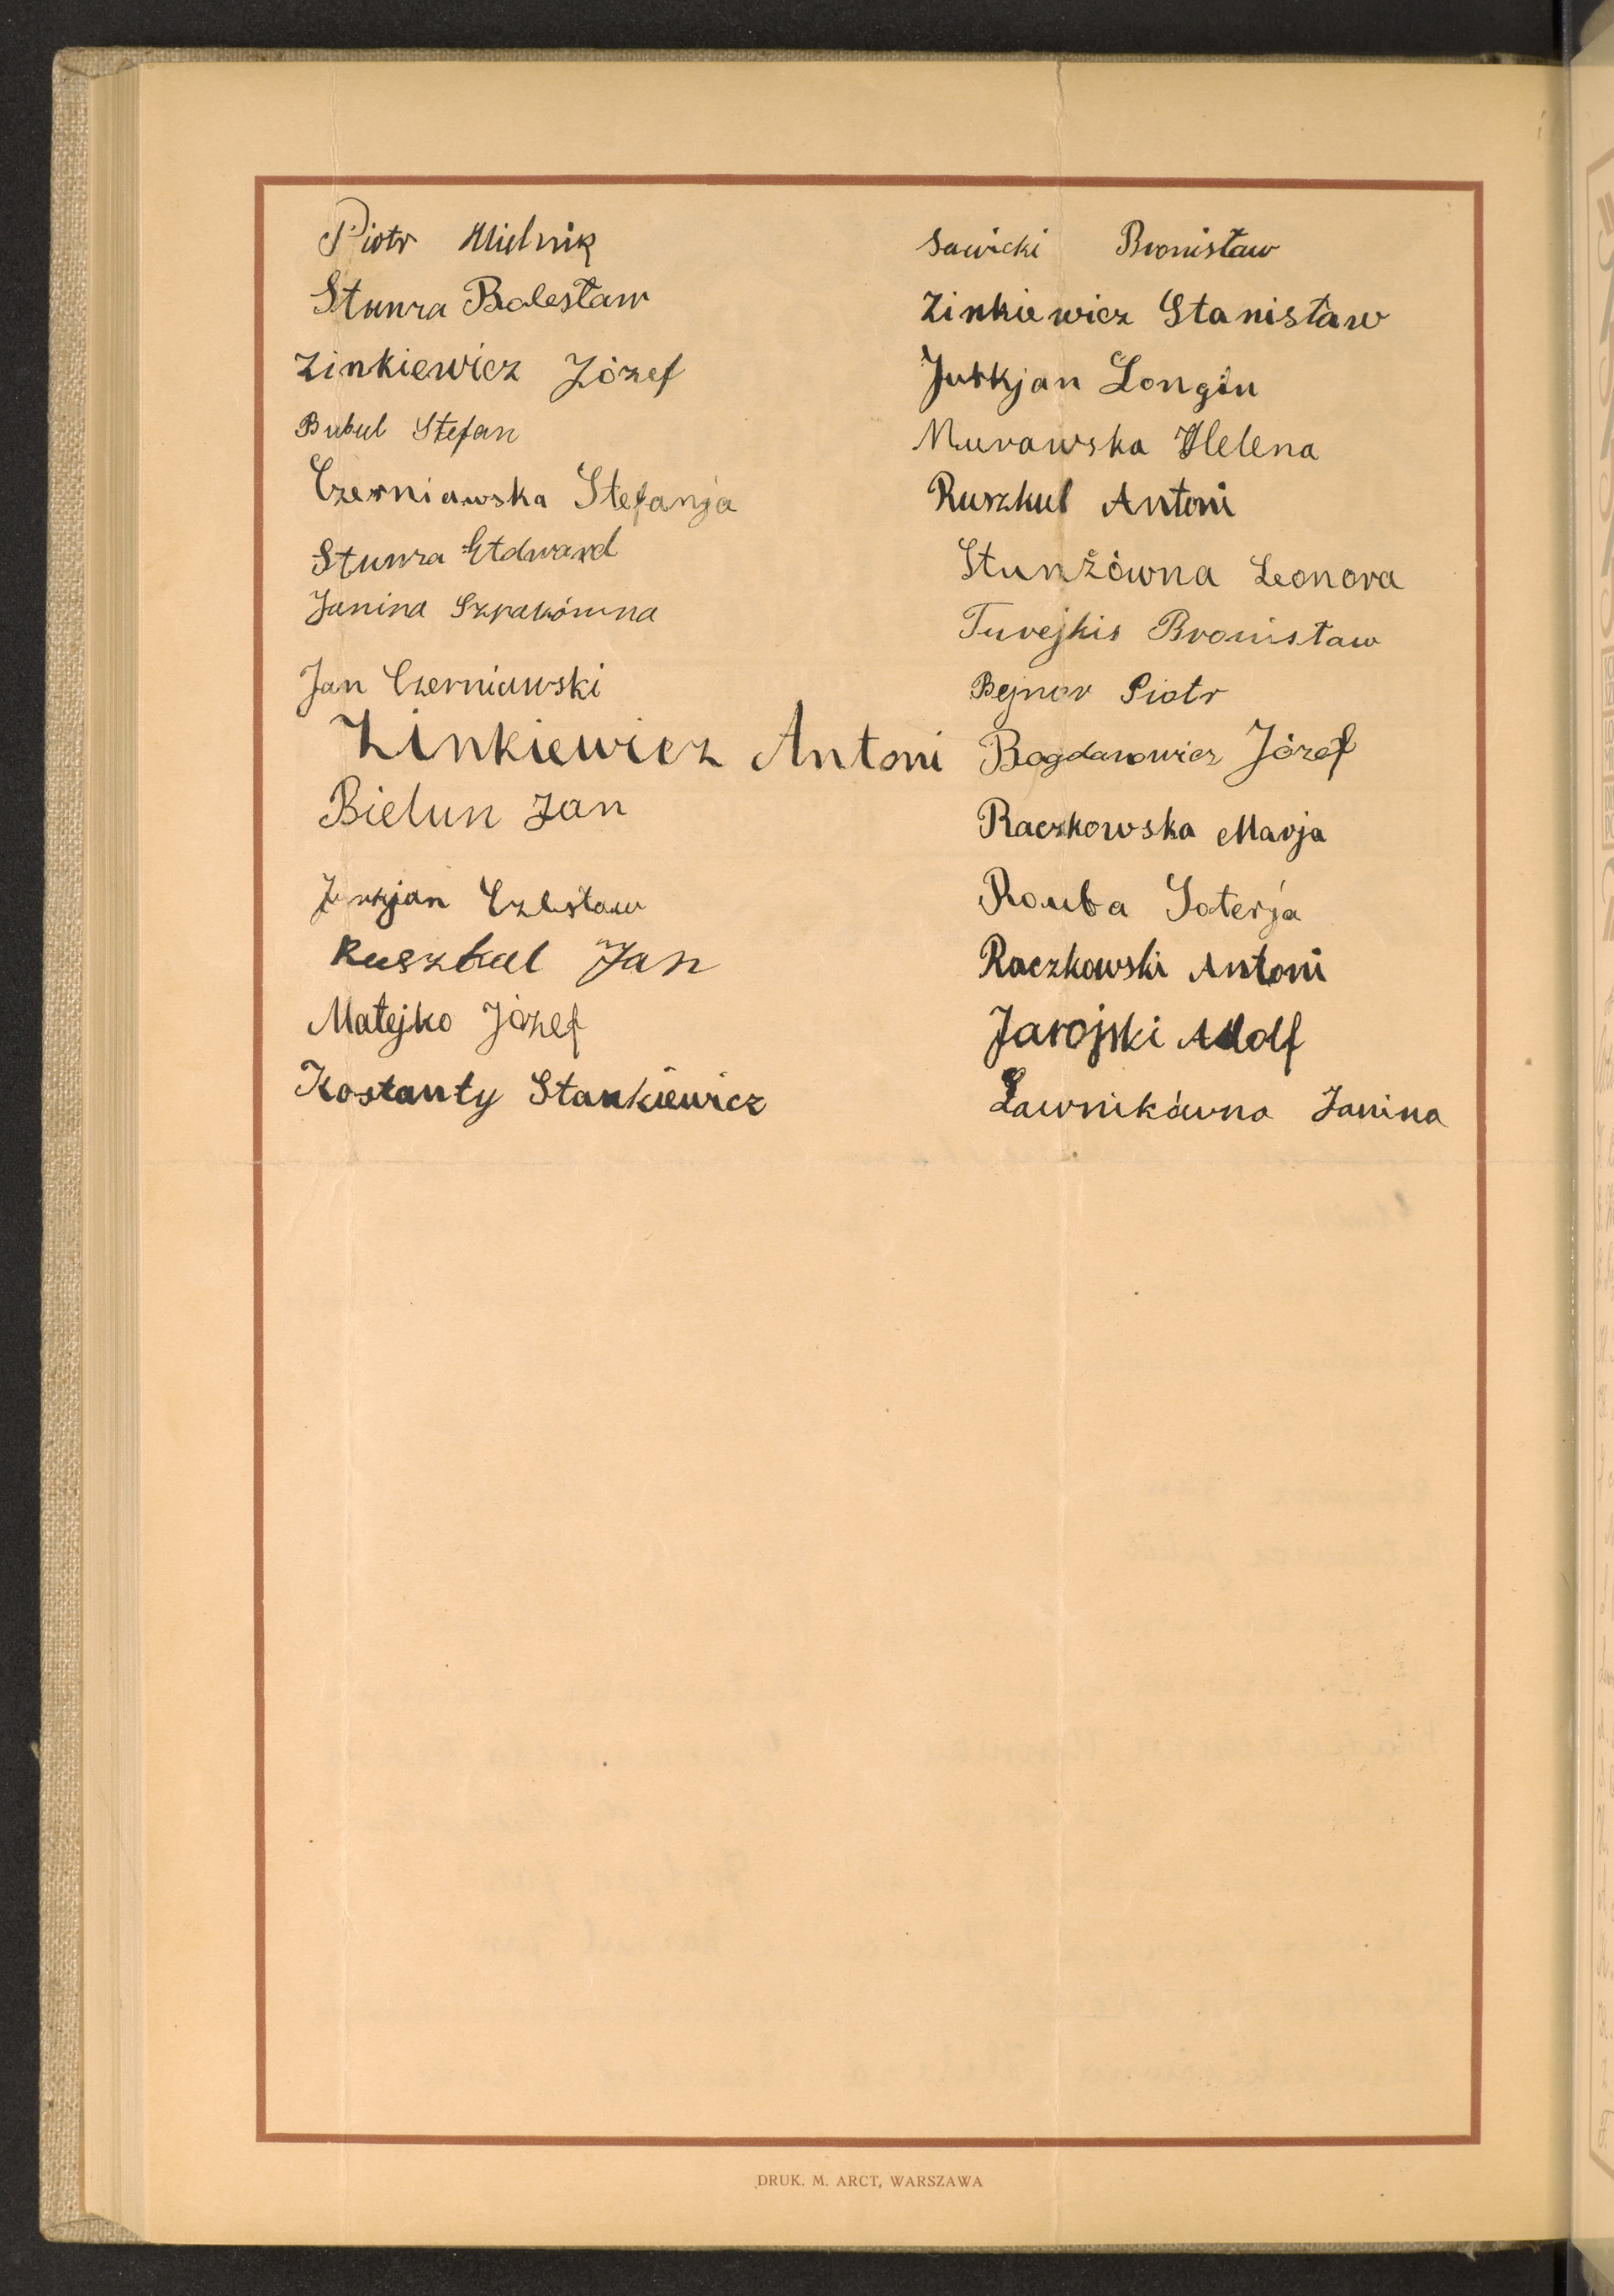 Piotr Mielnik
Stunża Bolesław
Zinkiewicz Józef
Bubul Stefan
Czerniawska Stefanja
Stunża Edward
Janina Szpakówna
Jan Czerniawski
Zinkiewicz Antoni
Bielun Jan
Jurkjan Czesław
Ruszkul Jan
Matejko Józef
Kostanty Stankiewicz
Sawicki Bronisław
Zinkiewicz Stanisław
Jurkjan Longin
Murawska Helena
Ruszkul Antoni
Stunżówna Leonora
Turejkis Bronisław
Bejnar Piotr
Bogdanowicz Józef
Raczkowska Marja
Rouba Soterja
Raczkowski Antoni
Jarojski Adolf
Ławnikówna Janina
DRUK. M. ARCT, WARSZAWA